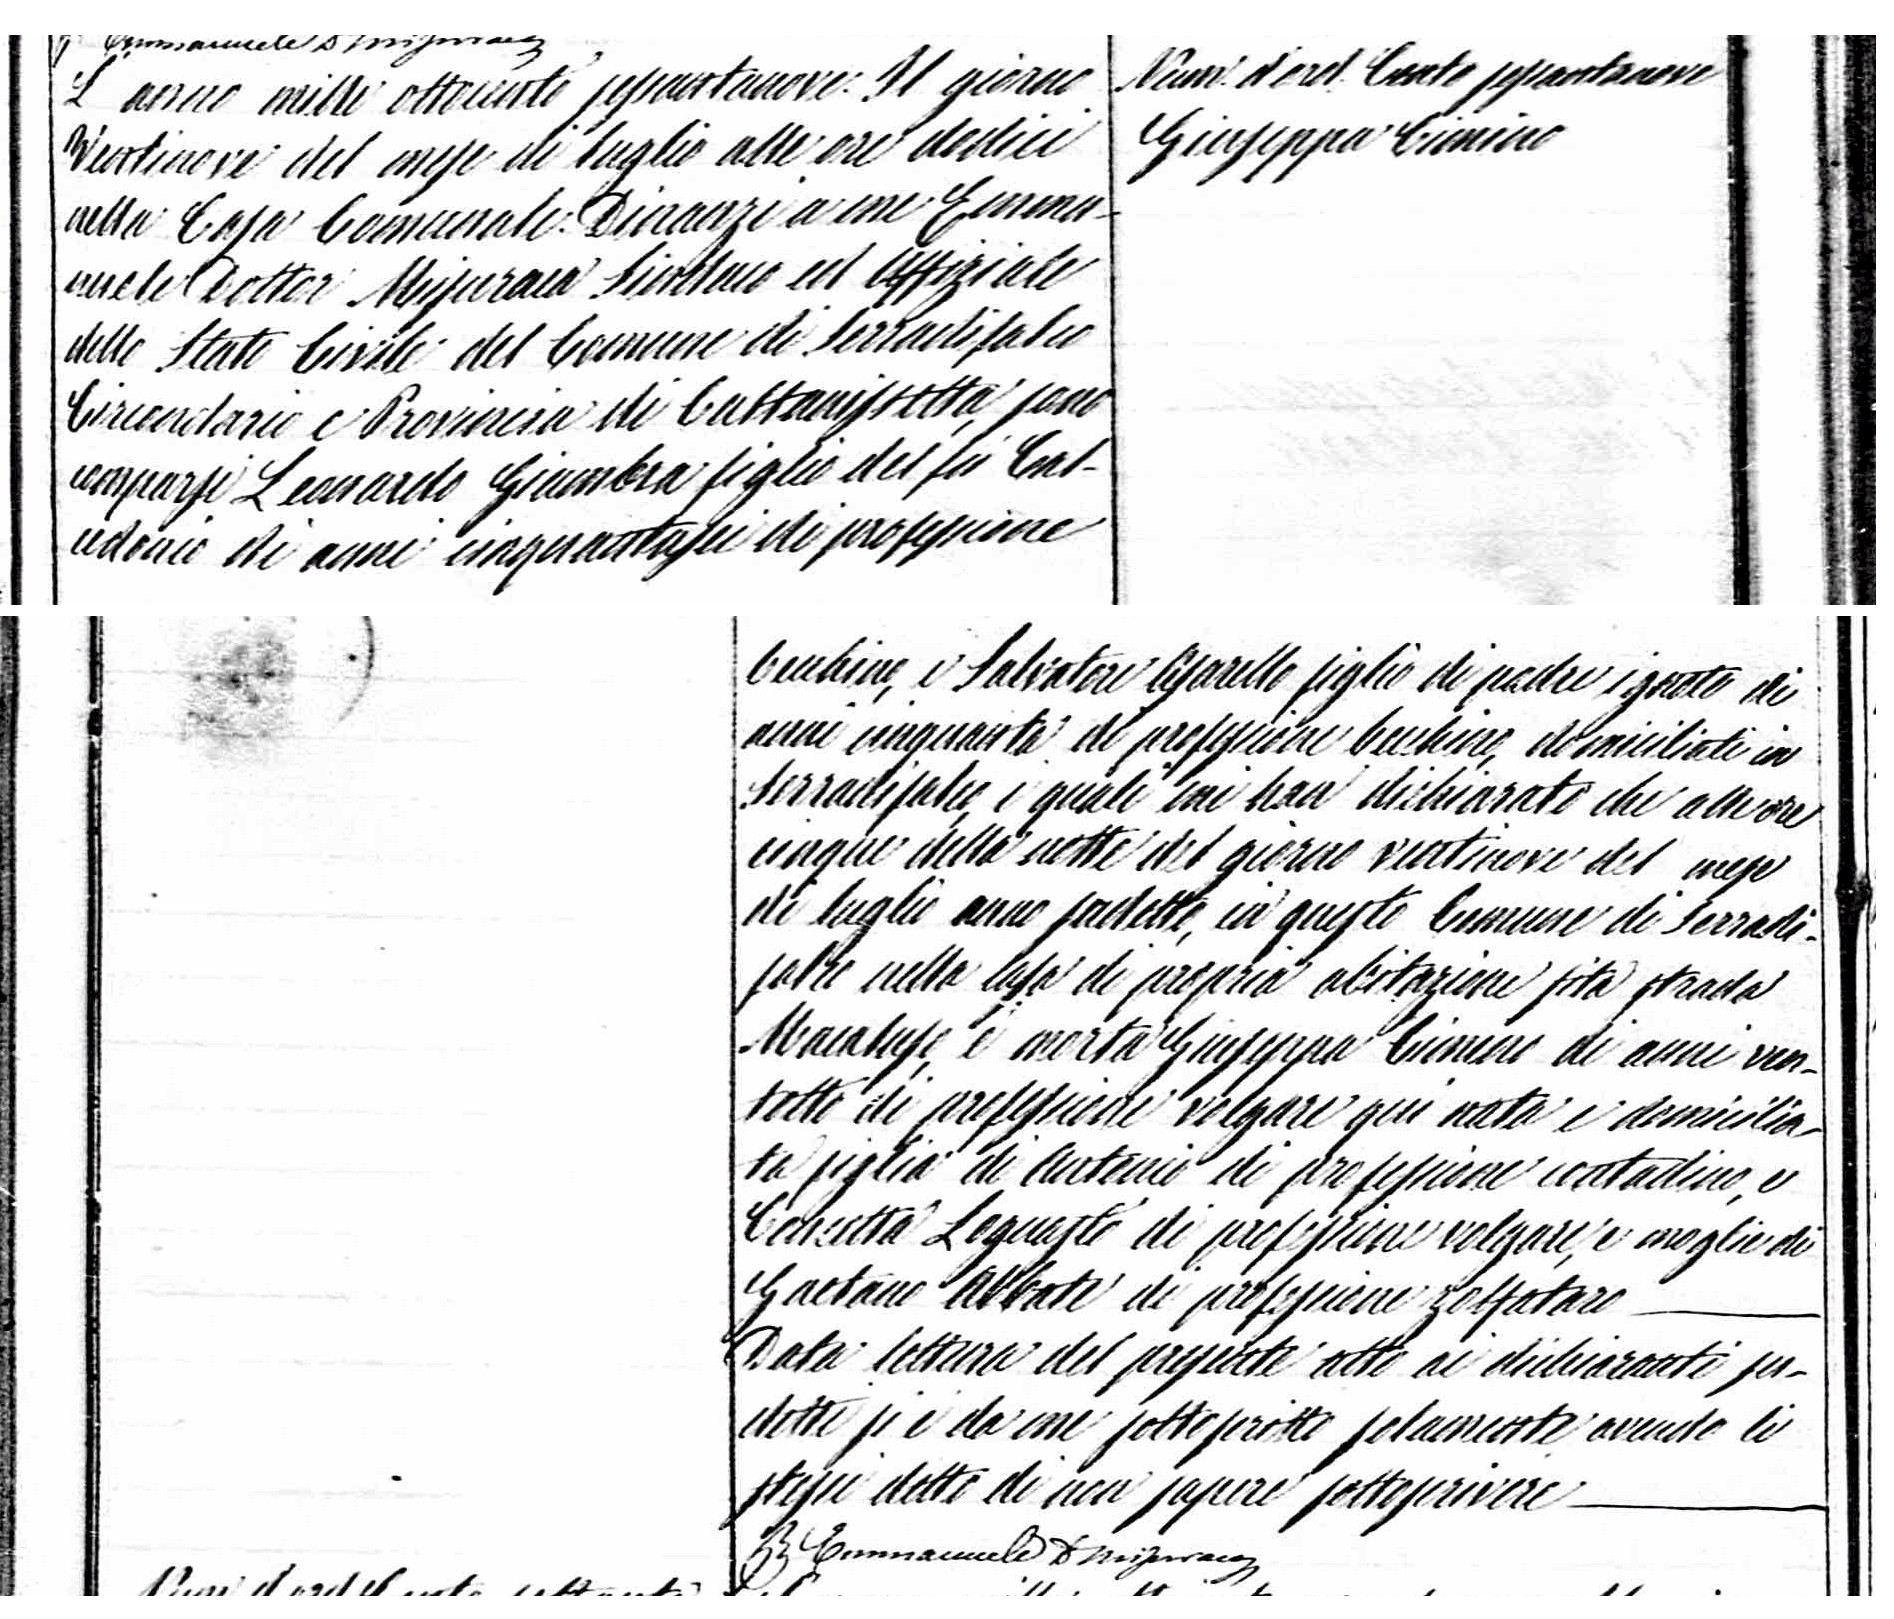 Emmanuele D Misuraca
L'anno mille ottocento sessantanove. Il giorno
Ventinove del mese di luglio alle ore dodici
nella Casa Comunale. Dinanzi a me Emma-
nuele Dottor Misuraca Sindaco ed Uffiziale
dello Stato Civile del Comune di Serradifalco
Circondario e Provincia di Caltanissetta, sono
comparsi Leonardo Giumbra figlio del fu Cal-
cedonio di anni cinquantasei di professione
Num. d'ord. Cento sessantanove
Giuseppa Cimino
becchino, e Salvatore figlio di padre ignoto di
anni cinquanta di professione becchino, domiciliati in
Serradifalco, i quali mi han dichiarato che alle ore
cinque della notte del giorno ventinove del mese
di luglio anno sudetto, in questo Comune di Serradi-
falco nella casa di propria abitazione sita strada
Macaluso, è morta Giuseppa Cimino di anni ven-
totto di professione volgare qui nata e domicilia-
ta figlia di Antonio di professione contadino, e
Concetta Loguasto di professione volgare, e moglie di
Gaetano Abbate di professione zolfataro
Data lettura del presente atto ai dichiaranti su-
detti si è da me sottoscritto solamente avendo li
stessi detto di non sapere sottoscrivere
Emmanuele D Misuraca
Num. d'ord. Cento settanta